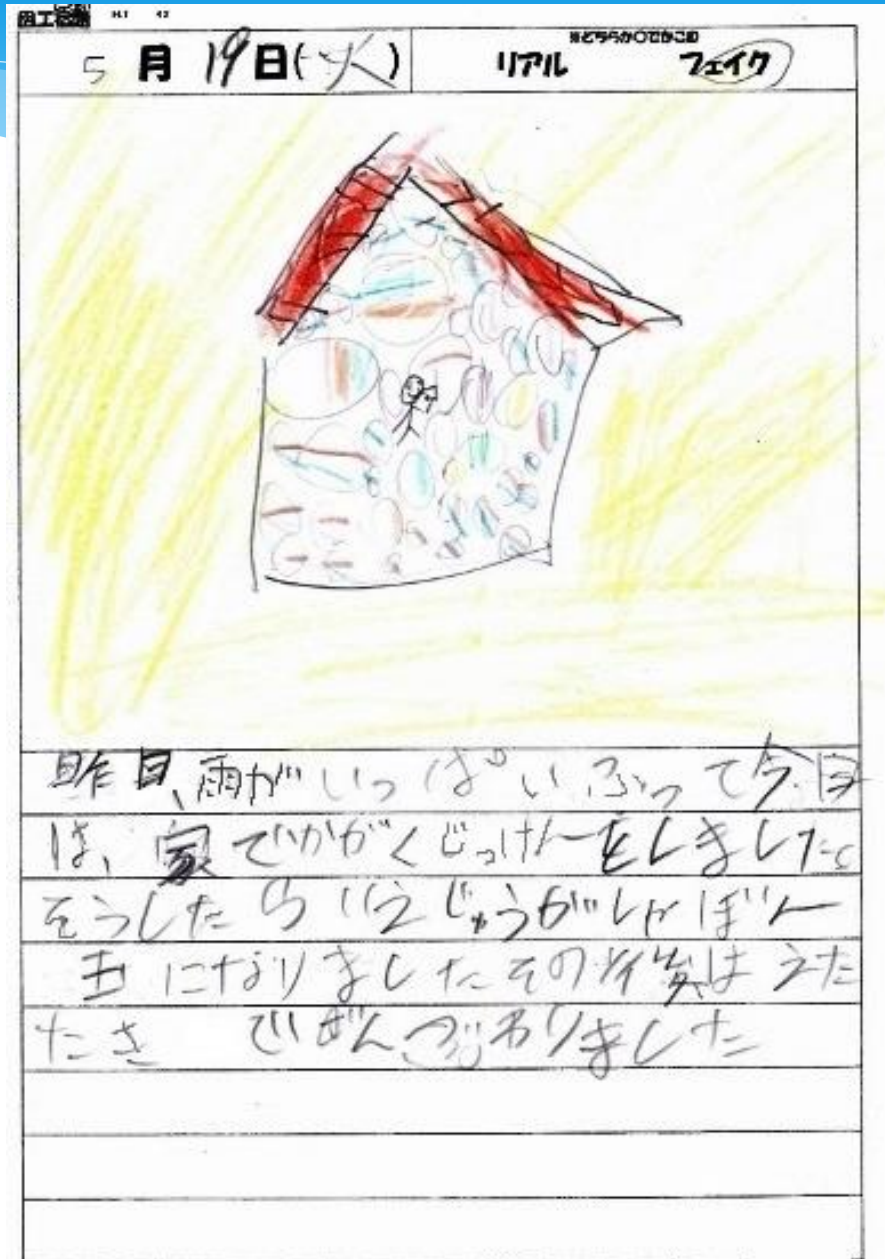 5月19日(火)
※どちらか○でかこむ
リアル フェイク
昨日、雨がいっぱいふって今日
は、家でかがくじっけんをしました。
そうしたらいえじゅうがしゃぼん
玉になりましたその後は
でぜんぶわりました